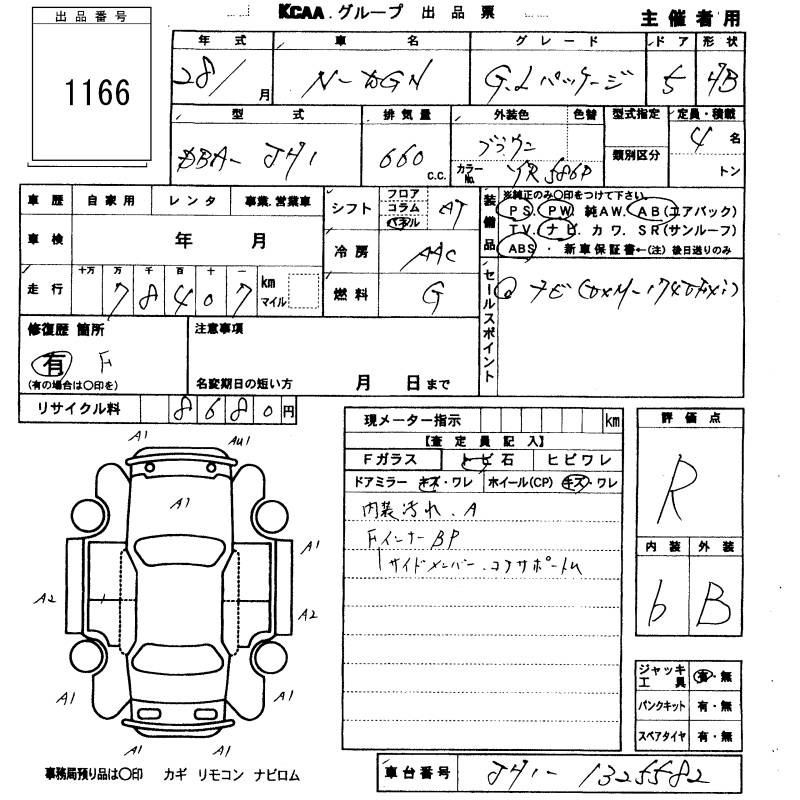 出品番号
1166
KCAA.グループ 出品票
主催者用
年式 車名 グレード ドア 形状
28/ 月 N-WGN G.Lパッケージ 5 HB
型式 排気量 外装色 色替 型式指定 定員・積載
DBA- JH1 660 c.c. ブラウン カラーNo. YR586P 類別区分 4 名
トン
車歴 自家用 レンタ 事業.営業車
車検 年 月
走行 十万 万 千 百 十 一 km マイル
7 8 4 0 7
シフト フロア コラム パネル AT
冷房 AAC
燃料 G
装備品 ※純正のみ〇印をつけて下さい。
PS. PW. 純AW. AB(エアバック)
TV. ナビ. カワ. SR(サンルーフ)
ABS ・ 新車保証書←(注) 後日送りのみ
セールスポイント
ナビ(DXM-1740FXi)
修復歴 箇所
有 F
(有の場合は〇印を)
注意事項
名変期日の短い方 月 日まで
リサイクル料 8680円
現メーター指示 km
【査定員記入】
Fガラス トビ石 ヒビワレ
ドアミラー キズ・ワレ ホイール(CP) キズ・ワレ
内装汚れ.A
FインナーBP
サイドメンバー.コアサポートム
評価点
R
内装 外装
b B
ジャッキ工具 有・無
パンクキット 有・無
スペアタイヤ 有・無
A1 AU1
A1
A1
A2 A2
A1 A1
A1 A1
事務局預り品は〇印 カギ リモコン ナビロム
車台番号 JH1-1325582